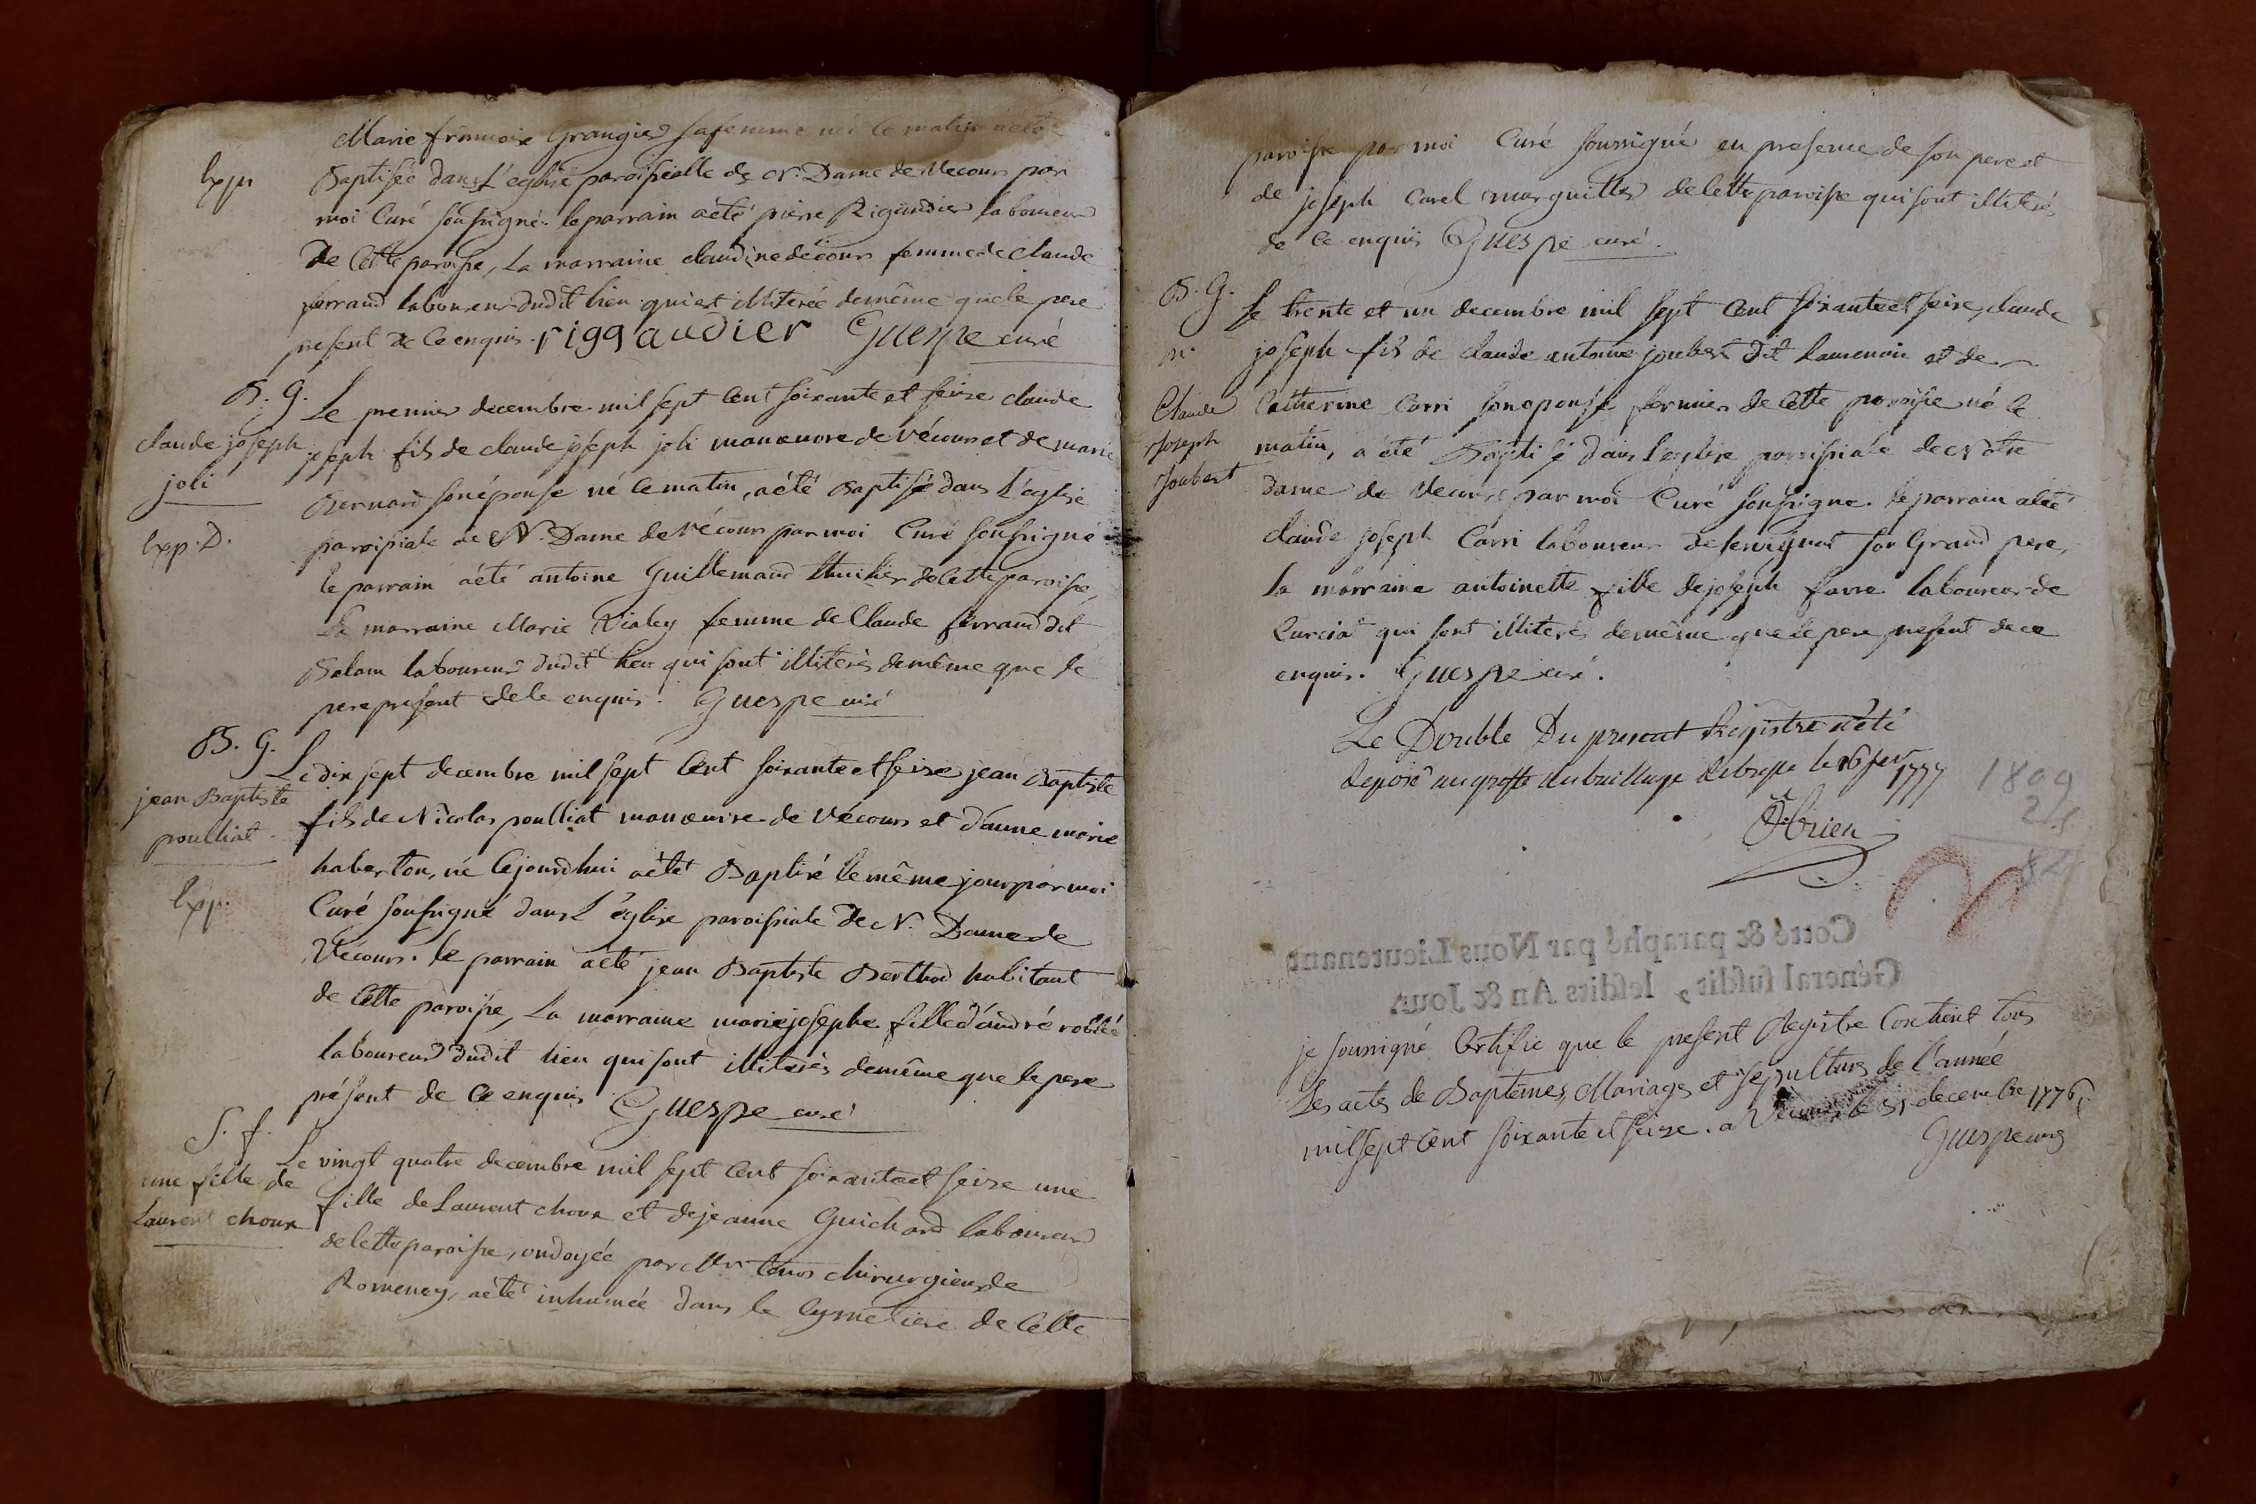 Marie francoise Grangier sa femme née ce matin a été
Exp.
Baptisée dans l'eglise paroissialle de N. Dame de Vecour par
moi Curé soussigné. le parrain a été pierre Rigaudier laboureur
De Cette paroisse, La marraine claudine decour femme de Claude
ferrand laboureur dudit lieu qui est illiterée de même que le pere
present De Ce enquis. riggaudier Guespe curé
B. G.
claude joseph
joli
Exp. D.
Le premier decembre mil sept Cent soixante et seize claude
joseph fils de claude joseph joli manœuvre de vécour et de marie
Bernard son épouse né ce matin, a été Baptisé dans l'eglise
paroissiale de N. Dame de vécour par moi Curé soussigné
le parrain a été antoine Guillemaud thuilier de Cette paroisse,
La marraine Marie Vialey femme de Claude ferrand dit
Balam laboureur dudit lieu qui sont illiterés de même que le
pere present de Ce enquis. Guespe curé
B. G.
jean Baptiste
poulliat
Exp.
Le dix sept decembre mil sept Cent soixante et seize jean Baptiste
fils de Nicolas poulliat manœuvre de vécour et d'anne marie
haberton, né Cejourd'hui a été Baptisé le même jour par moi
Curé soussigné dans L'église paroissiale De N. Dame de
Vécour. le parrain a été jean Baptiste Berthod habitant
de Cette paroisse, La marraine marie josephe fille d'andré
laboureur dudit lieu qui sont illiterés de même que le pere
présent de Ce enquis Guespe curé
S. f.
une fille de
Laurent choux
Le vingt quatre decembre mil sept Cent soixante et seize une
fille de Laurent choux et de jeanne Guichard laboureur
de Cette paroisse, ondoyée par Mr chirurgien de
Romenay, a été inhumée dans le Cymetiere de Cette
paroisse par moi Curé soussigné en presence de son pere et
de joseph Carel marguillier de Cette paroisse qui sont illiterés
de Ce enquis Guespe curé.
B. G.
Claude
Joseph
Joubert
Le trente et un decembre mil sept Cent soixante et seize, claude
joseph fils de claude antoine joubert Dit Lamenoir et de
Catherine Corri son epouse fermier de Cette paroisse né le
matin, a été Baptisé dans l'eglise paroissiale de Notre
Dame de Vecour par moi Curé soussigné. le parrain a été
claude joseph Corri laboureur de servignat son Grand pere,
la marraine antoinette fille de joseph favre laboureur de
Curciat qui sont illiterés de même que le pere present de ce
enquis. Guespe curé.
Le Double Du present Registre a été
deposé au greffe du bailliage de bresse le 26 fev. 1777
1809
Cotté & paraphé par Nous Lieutenant
Général susdit, lesdits An & Jour.
je soussigné Certifie que le present Registre Contient tous
Les actes de Baptêmes, Mariages et sepultures de l'année
mil sept cent soixante et seize. a Vecour le 31 decembre 1776
Guespe curé